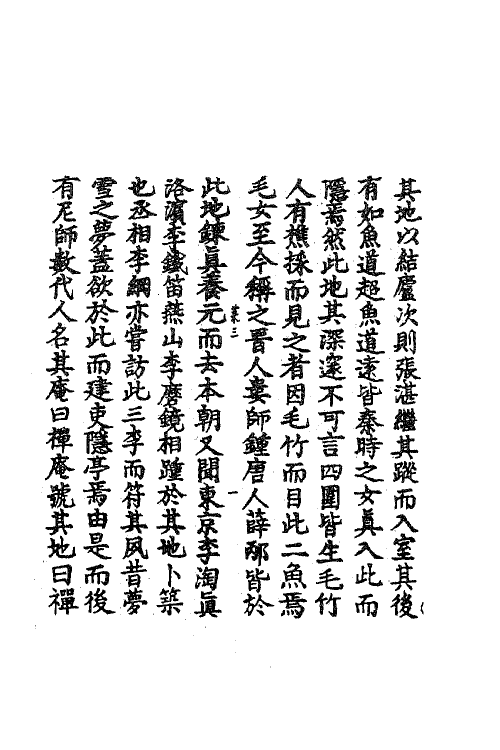 其地以結廬次則張湛繼其蹤而入室其後
有如魚道超魚道遠皆秦時之女真入此而
隱焉然此地其深邃不可言四圍皆生毛竹
人有樵採而見之者因毛竹而目此二魚焉
毛女至今稱之晋人婁師鍾唐人薛邴皆於
此地鍊真養元而去本朝又聞東京李淘真
洛濵李鐵笛燕山李磨鏡相踵於其地卜築
也丞相李綱亦嘗訪此三李而符其夙昔夢
雪之夢蓋欲於此而建吏隱亭焉由是而後
有尼師數代人名其庵曰禪庵號其地曰禪